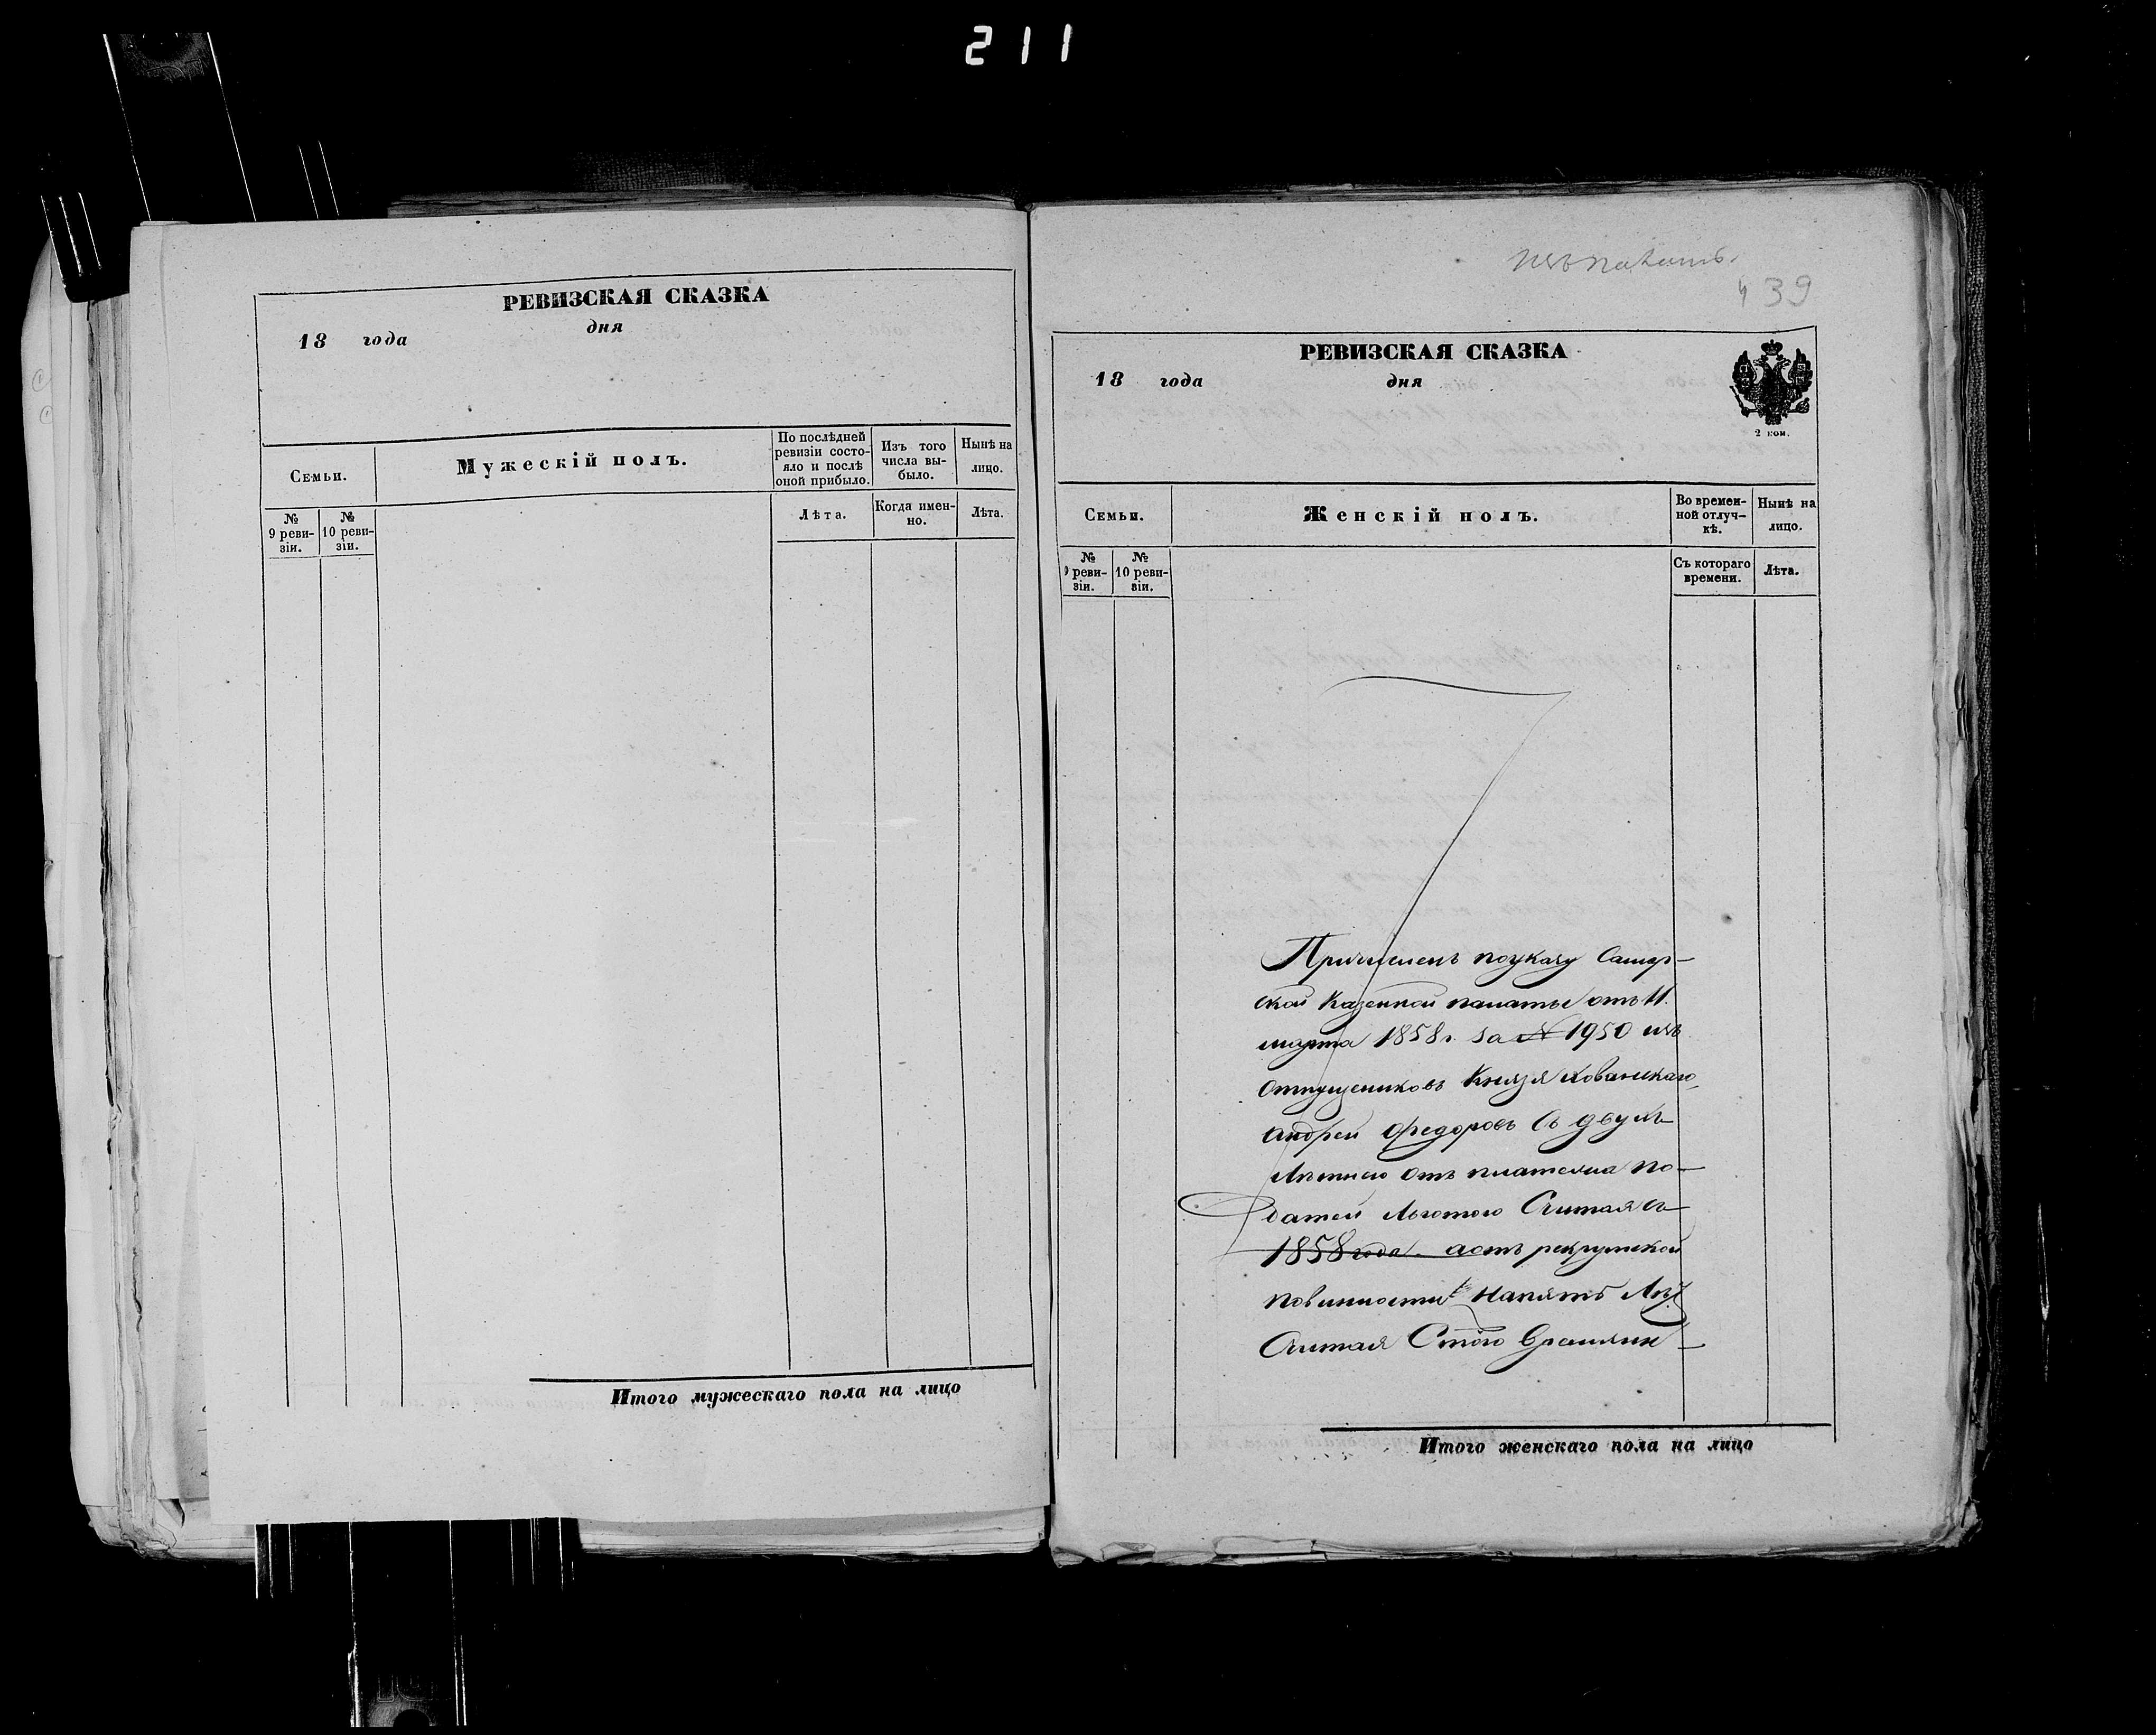 211
РЕВИЗСКАЯ СКАЗКА
18 года дня
Семьи.
Мужескій полъ.
По послѣдней ревизіи состо-
яло и послѣ
оной прибыло.
Изъ того
числа вы-
было.
Нынѣ на
лицо.
№
9 реви-
зіи.
№
10 реви-
зіи.
Лѣта.
Когда имен-
но.
Лѣта.
Итого мужескаго пола на лицо
439
РЕВИЗСКАЯ СКАЗКА
18 года дня
2 коп.
Семьи.
Женскій полъ.
Во времен-
ной отлуч-
кѣ.
Нынѣ на
лицо.
№
9 реви-
зіи.
№
10 реви-
зіи.
Съ котораго
времени.
Лѣта.
Причисленъ поуказу Самар-
ской Казенной палаты отъ 11.
марта 1858 г. за № 1950 изъ
отпущениковъ Князя Хованскаго
Андрей Федоровъ съ двухъ
лѣтнею отъ платежа по-
датей льготою Считая съ
1858 года. аотъ рекрутской
повинности напять лѣт
Считая Стого времяни
Итого женскаго пола на лицо